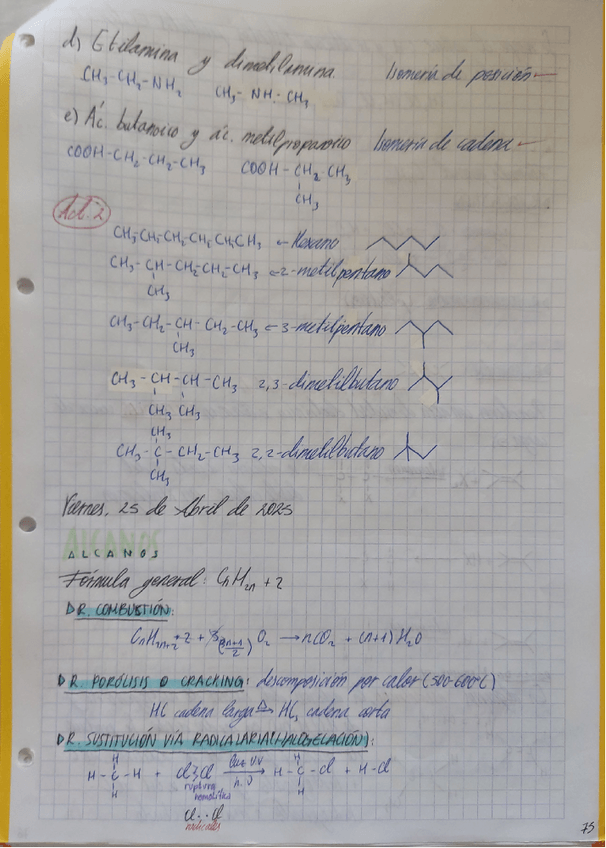 d) Etilamina y dimetilamina Isomería de posición
CH3-CH2-NH2 CH3-NH-CH3
e) Ác. butanoico y ác. metilpropanoico Isomería de cadena
COOH-CH2-CH2-CH3 COOH-CH2 CH3
CH3
Act. 2
CH3-CH2-CH2-CH2-CH2CH3 ← Hexano
CH3-CH-CH2-CH2-CH3 ← 2-metilpentano
CH3
CH3-CH2-CH-CH2-CH3 ← 3-metilpentano
CH3
CH3-CH-CH-CH3 2,3-dimetilbutano
CH3 CH3
CH3
CH3-C-CH2-CH3 2,2-dimetilbutano
CH3
Viernes, 25 de Abril de 2025
ALCANOS
ALCANOS
Fórmula general: CnH2n+2
R. COMBUSTIÓN:
CnH2n+2 + (3n+1/2) O2 → nCO2 + (n+1) H2O
R. PIRÓLISIS O CRACKING: descomposición por calor (500-600°C)
HC cadena larga Δ→ HC, cadena corta
R. SUSTITUCIÓN VÍA RADICALARIA (HALOGELACIÓN):
H H
H-C-H + Cl Cl luz UV → H-C-Cl + H-Cl
H ruptura H
homolítica
Cl· ·Cl
radicales
75